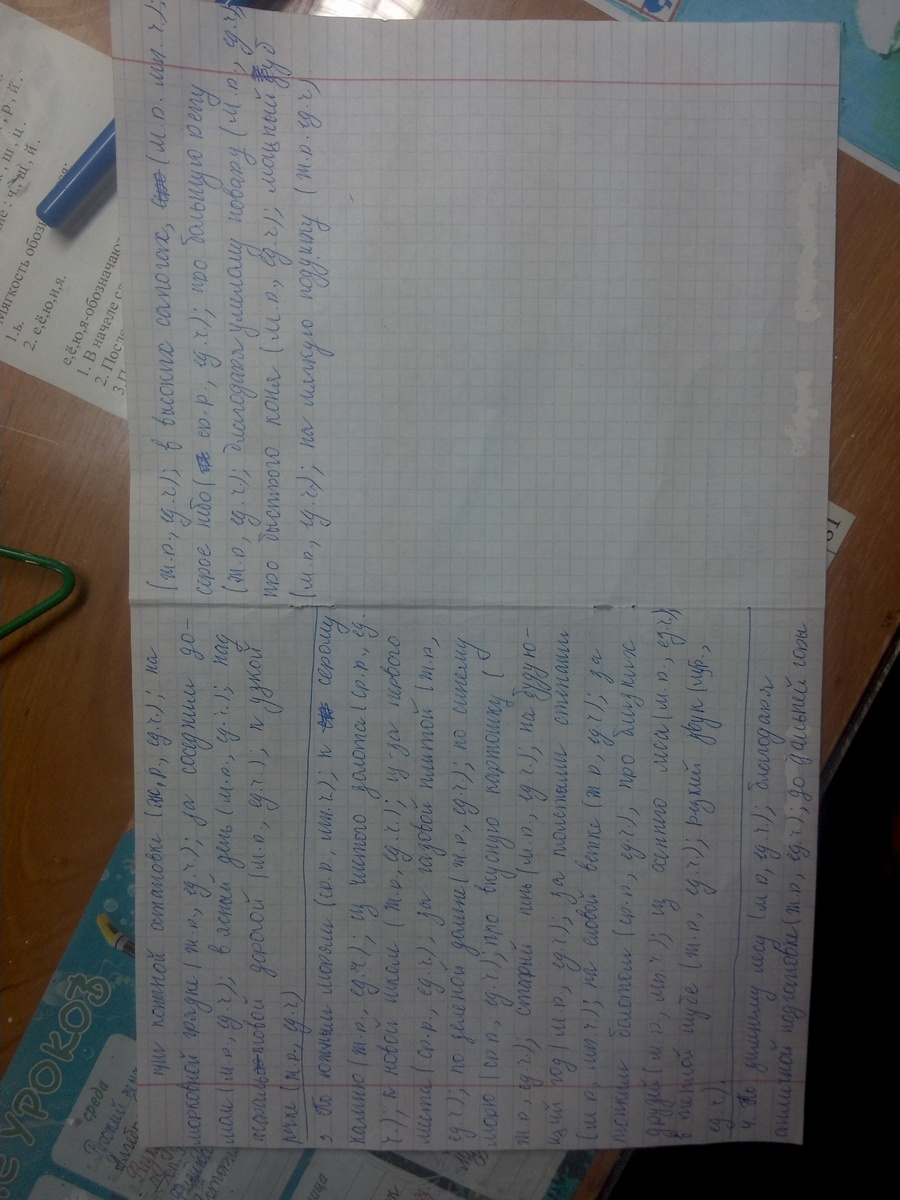 при конечной остановке (ж.р., ед.ч); на
морковной грядке (ж.р., ед.ч); за соседним до-
мом (м.р., ед.ч); в ясный день (м.р., ед.ч); над
торговой дорогой (ж.р., ед.ч); к узкой
речке (ж.р., ед.ч)
3. По южным морям (ср.р., мн.ч); к серому
камню (м.р., ед.ч); из чистого золота (ср.р., ед.
ч); к новой школе (ж.р, ед.ч); из-за первого
места (ср.р., ед.ч); за газовой плитой (ж.р,
ед.ч); по зеленой долине (ж.р, ед.ч); по синему
морю (ср.р, ед.ч); про вкусную картошку (
ж.р, ед.ч); старый пень (м.р., ед.ч); на будую-
щий год (м.р, ед.ч); за толстыми стенами
(м.р, мн.ч); на еловой ветке (ж.р, ед.ч); за
топким болотом (ср.р, ед.ч); про близких
друзей (м.р., мн.ч); из густого леса (м.р., ед.ч);
в теплой шубе (ж.р, ед.ч); резкий звук (м.р.,
ед.ч).
4. По зимнему лесу (м.р, ед.ч); благодаря
отличной подготовке (ж.р, ед.ч); до дальней горы
(ж.р., ед.ч); в высоких сапогах, (м.р. мн.ч);
серое небо (ср.р, ед.ч); про большую репу
(ж.р, ед.ч); благодаря умелому повару (м.р, ед.ч)
про быстрого коня (м.р, ед.ч); мощный дуб
(м.р, ед.ч); на мягкую подушку (ж.р. ед.ч)
Мягкость
1.ь.
2. е,ё,ю,и,я.
е,ё,ю,я-обозначают
1. В начеле
2. После
УРОКОВ
среда